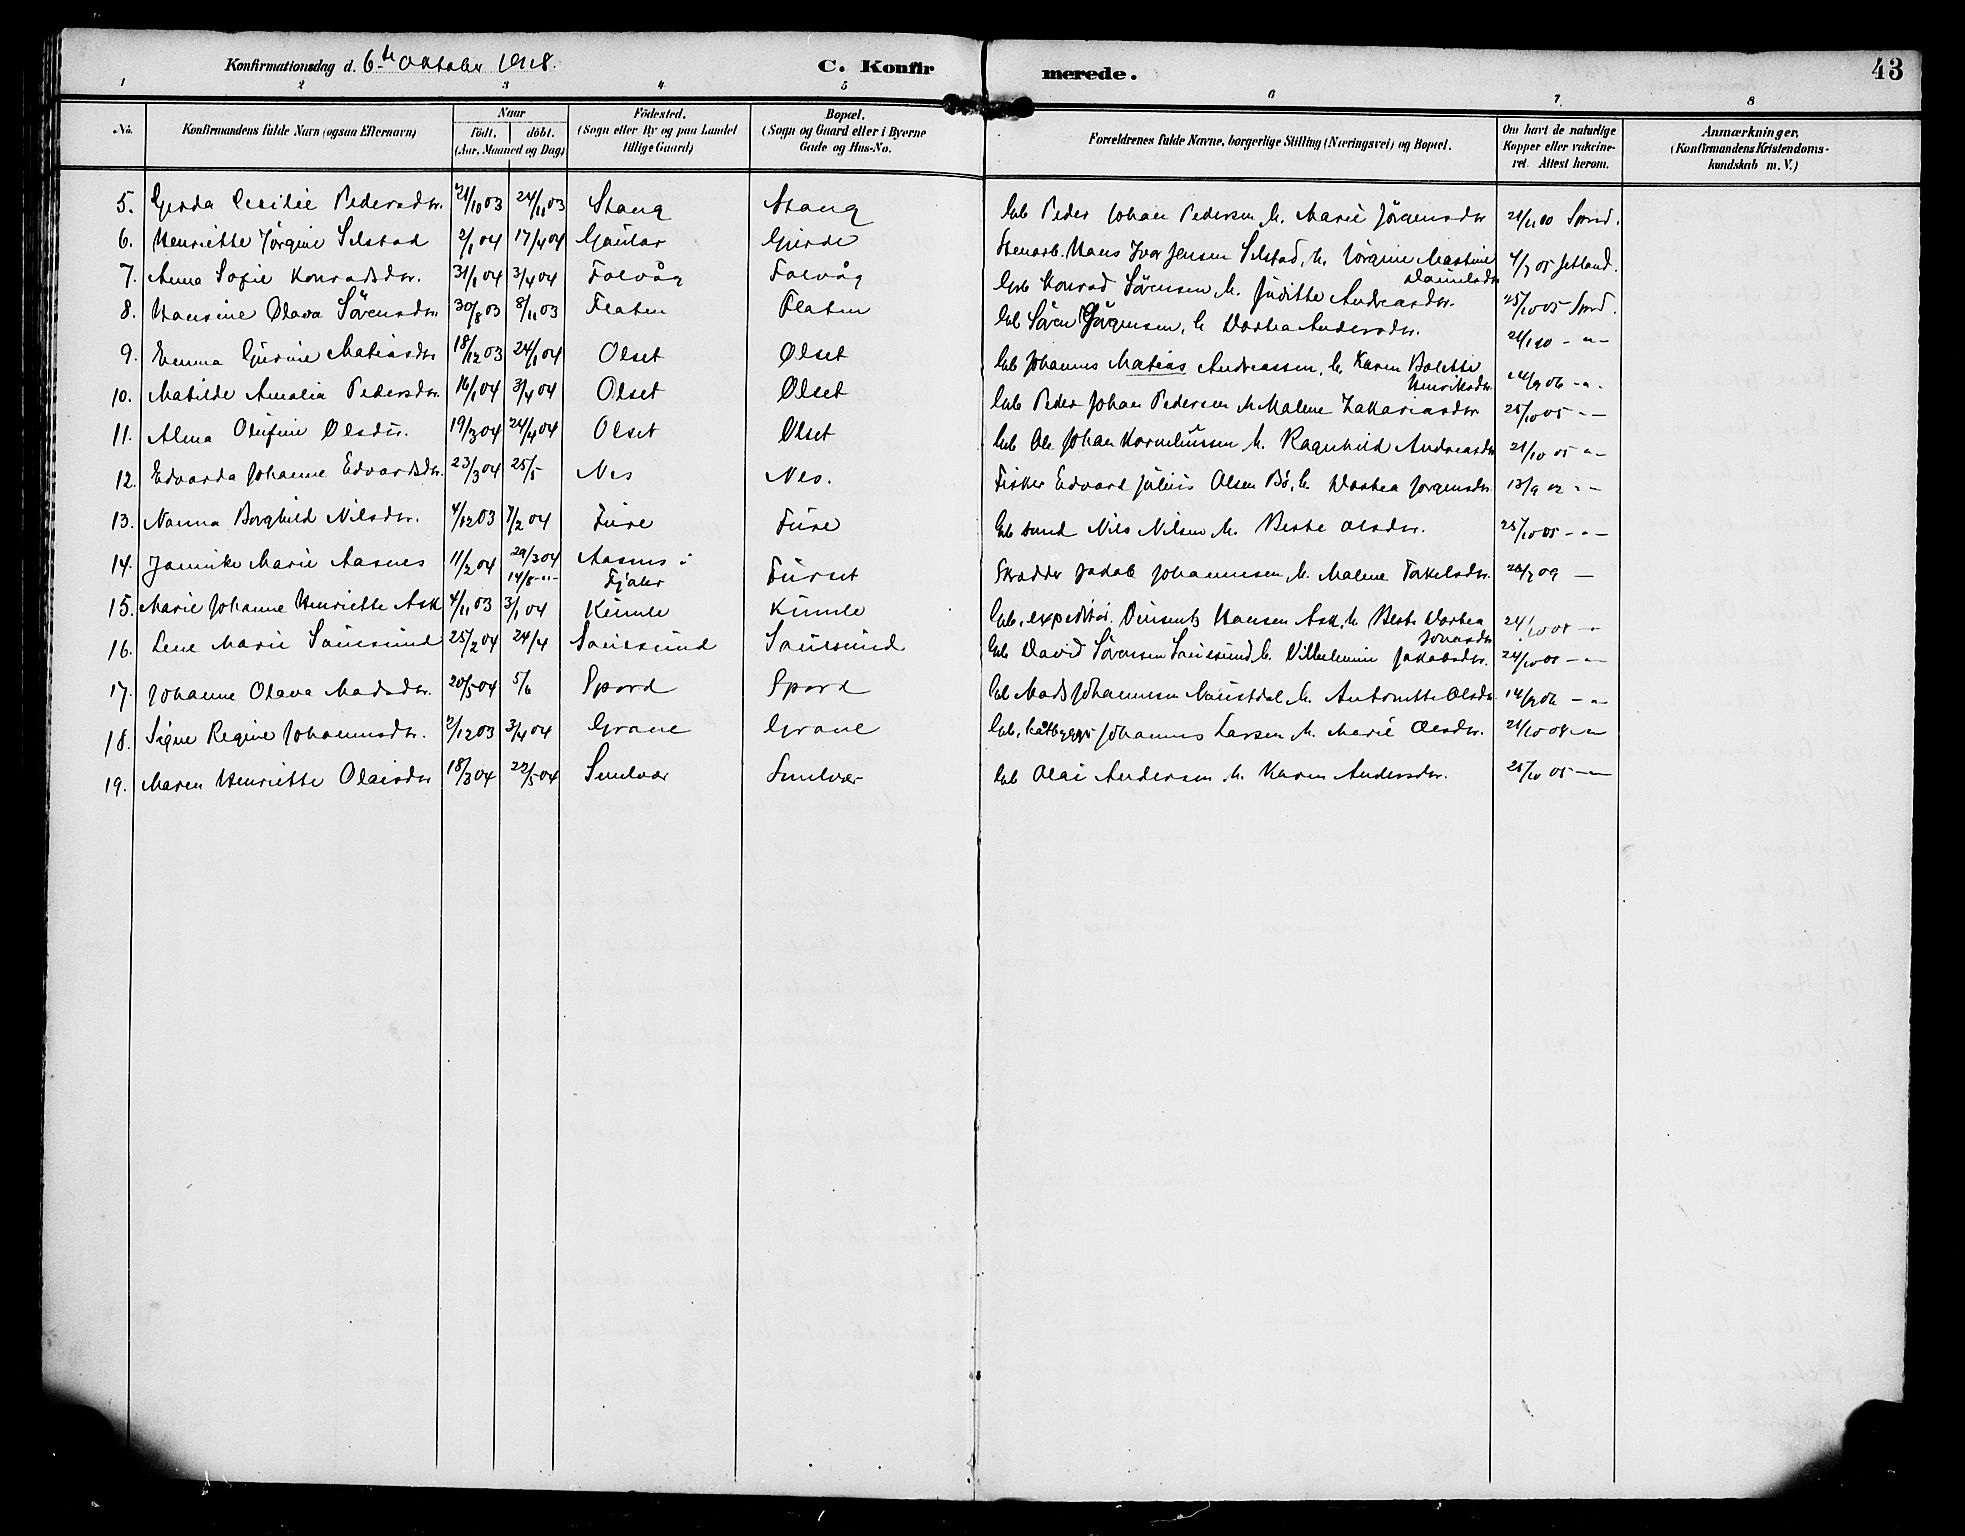 Konfirmationsdag d. 6te Oktober 1918. C. Konfirmerede. 43
1 2 3 4 5 6 7. 8
No. Konfirmandens fulde Navn (ogsaa Efternavn) Naar født. døbt. (Aar, Maaned og Dag) Födested. (Sogn eller By og paa Landet tillige Gaard) Bopæl. (Sogn og Gaard eller i Byerne Gade og Hus-No. Forældrenes fulde Navne, borgerlige Stilling (Næringsvei) og Bopæl. Om havt de naturlige Kopper eller vakcineret. Attest herom. Anmærkninger, (Konfirmandens Kristendomskundskab m. V.)
5. Gerda Cecilie Pedersdtr. 21/10 03 24/11 03 Stang Stang Gbr Peder Johan Pedersen h. Marie Jörgensdtr
6. Henriette Jörgine Selstad 2/1 04 17/4 04 Gaular Gjerde Stenarb. Hans Ivar Jensen Selstad, h. Jörgine Martine Danielsdtr
7. Anna Sofie Konradsdtr. 31/1 04 3/4 04 Folvåg Folvåg Gbr Konrad Sörensen h. Juditte Andreasdtr.
8. Hansine Olava Sörensdtr 30/8 03 8/11 03 Flaten Flaten Gbr Sören Jörgensen, h. Dortea Andersdtr. 25/10 05
9. Emma Matiasdtr 18/12 03 24/1 04 Olset Ølset Gbr Johannes Matias Andreassen, h. Karen Bolette Henriksdtr
10. Matilde Amalia Pedersdtr. 16/1 04 3/4 04 Olset Ølset Gbr Peder Johan Pedersen h. Malene Zakariasdtr 25/10 05 -"-
11. Alma Olufine Olsdtr. 19/3 04 24/4 04 Olset Ølset Gbr Ole Johan Korneliussen h. Ragnhild Andreasdtr 21/10 05 -"-
12. Edvarda Johanne Edvardsdtr. 23/3 04 25/5 Nes Nes. Fisker Edvard Julius Olsen Bö, h. Dortea Jörgensdtr 13/9 12 -"-
13. Nanna Borghild Nilsdtr. 4/12 03 7/2 04 Fure Fure Nils Nilsen h. Berte Olsdtr. 25/10 05 -"-
14. Jannike Marie Aasnes 11/2 04 29/3 04 14/8 -"- Aasnes i Fjaler Furset Skrædder Jakob Johannesen, h. Malene Torkelsdtr.
15. Marie Johanne Henriette Ask 4/11 03 3/1 04 Kumle Kumle Gbr, expeditör. Vinsents Hansen Ask, h. Berte Dortea Jonasdtr
16. Lene Marie Sauesund 25/2 04 24/4 Sauesund Sauesund Gbr David Sörensen Sauesund, h. Vilhelmine Jakobsdtr.
17. Johanne Olava Madsdtr. 20/5 04 5/6 Spord Spord Gbr Mads Johannesen Naustdal h. Antonette Olsdtr 14/9 06 -"-
18. Signe Regine Johannesdtr. 2/12 03 3/4 04 Grane Grane Gbr, båtbygger Johannes Larsen h. Marie Olsdtr.
19. Maren Henriette Olaisdtr 18/3 04 22/5 04 Smelvær Smelvær Gbr Olai Andersen h. Karen Andersdtr. 25/10 05 -"-